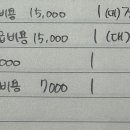 비용 15,000 | (대)
급비용 15,000 | (대)
000 |
비용 7000 |